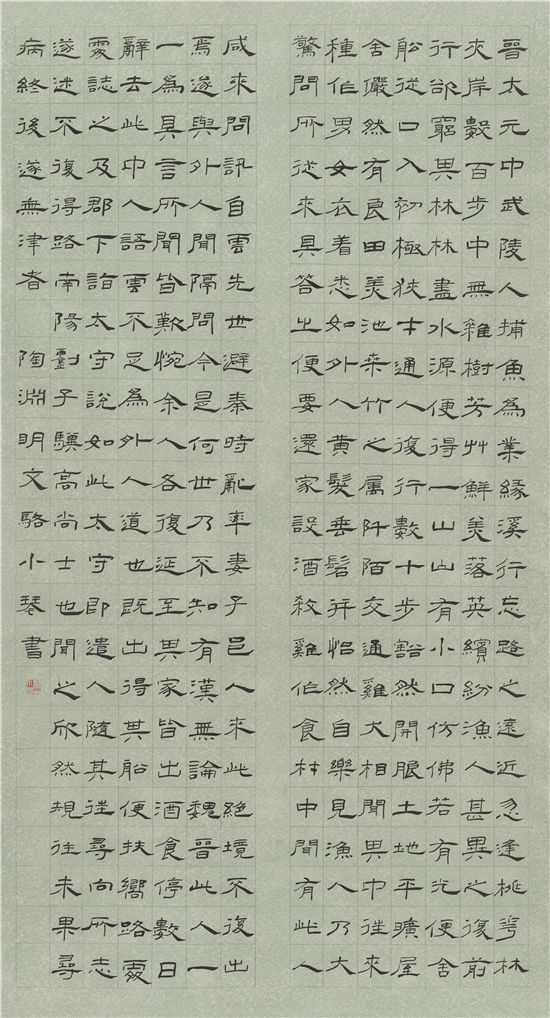 晉太元中武陵人捕魚為業緣溪行忘路之遠近忽逢桃花林
夾岸數百步中無雜樹芳艸鮮美落英繽紛漁人甚異之復前
行欲窮其林林盡水源便得一山山有小口仿佛若有光便舍
船從口入初極狹才通人復行數十步豁然開朗土地平曠屋
舍儼然有良田美池桑竹之属阡陌交通雞犬相聞其中往來
種作男女衣着悉如外人黃髮垂髫并怡然自樂見漁人乃大
驚問所從來具答之便要還家設酒殺雞作食村中聞有此人
咸來問訊自雲先世避秦時亂率妻子邑人來此絕境不復出
焉遂與外人間隔問今是何世乃不知有漢無論魏晉此人一
一為具言所聞皆歎惋余人各復延至其家皆出酒食停數日
辭去此中人語雲不足為外人道也既出得其船便扶嚮路處
處誌之及郡下詣太守說如此太守即遣人隨其往尋向所志
遂迷不復得路南陽劉子驥高尚士也聞之欣然規往未果尋
病終後遂無津者 陶淵明文駱小琴書